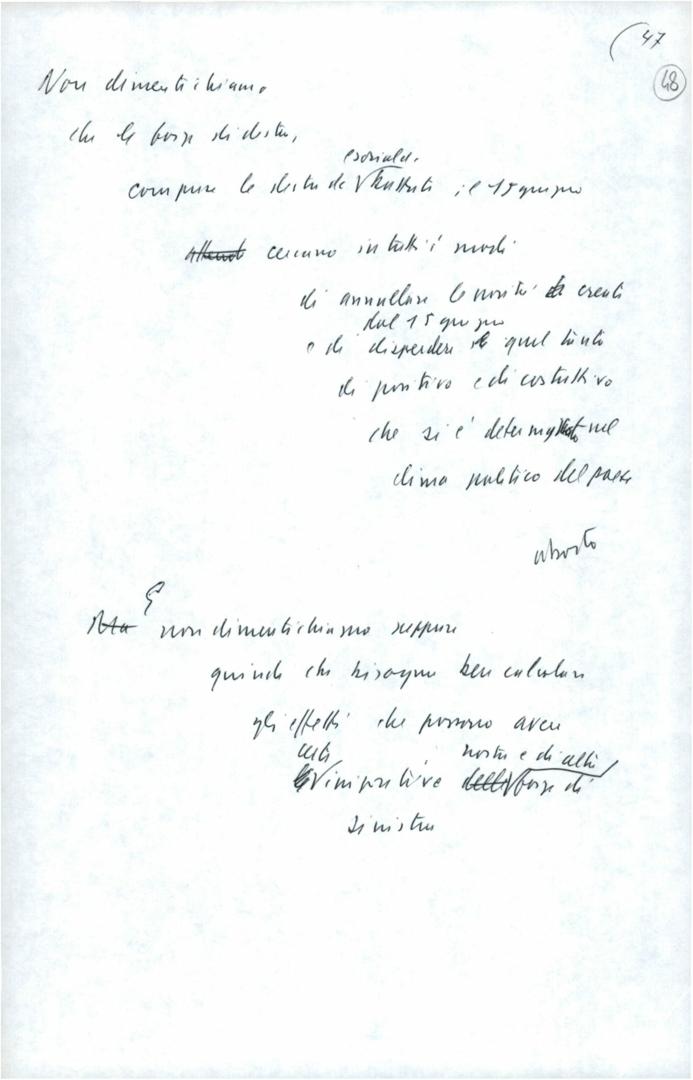 47
48
Non dimentichiamo
che le forze di destra,
compresa la destra dc battuta il 15 giugno
cercano in tutti i modi
di annullare le novità create
dal 15 giugno
e di disperdere quel tanto
di positivo e di costruttivo
che si è determinato nel
clima politico del paese
aborto
E
Ma non dimentichiamo neppure
quindi che bisogna ben calcolare
gli effetti che possono avere
certe nostre e di altre
iniziative delle forze di
sinistra